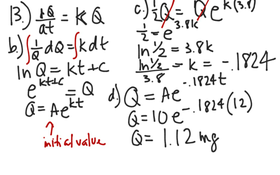 13.) dQ/dt = kQ
b) ∫ 1/Q dQ = ∫ k dt
ln Q = kt + c
e^(kt+c) = Q
Q = Ae^(kt)
initial value
c.) 1/2 Q = Q e^(k(3.8)
1/2 = e^(3.8k)
ln 1/2 = 3.8k
ln 1/2 / 3.8 = k = -.1824
d) Q = Ae^(-.1824t)
Q = 10e^(-.1824(12)
Q = 1.12 mg